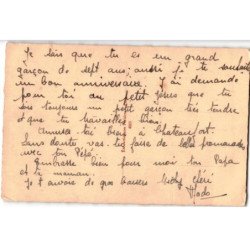 Je sais que tu es un grand
garçon de sept ans aussi je te souhaite
un bon anniversaire. J'ai demandé
pour toi au petit Jésus que tu
sois toujours un petit garçon très tendre
et que tu travailles bien.
Amuse toi bien à Chateaufort
Sans doute vas-tu faire de belles promenades
avec ton Pépé.
Embrasse bien pour moi ton Papa
et ta maman.
Je t'envoie de gros baisers chéri